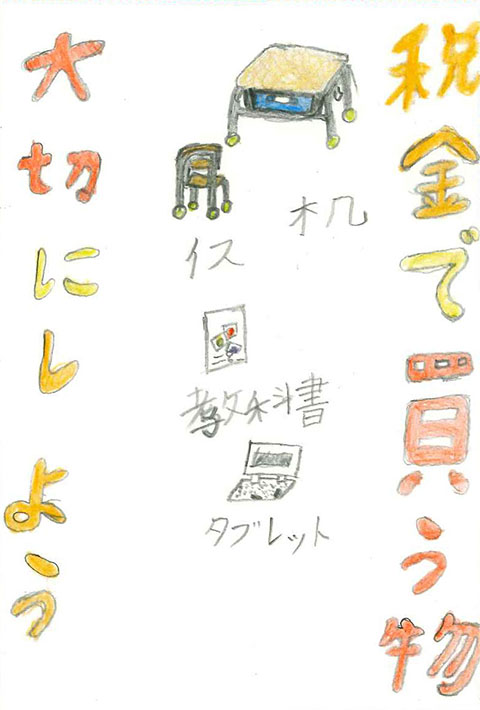 税金で買う物
机
イス
教科書
タブレット
大切にしよう